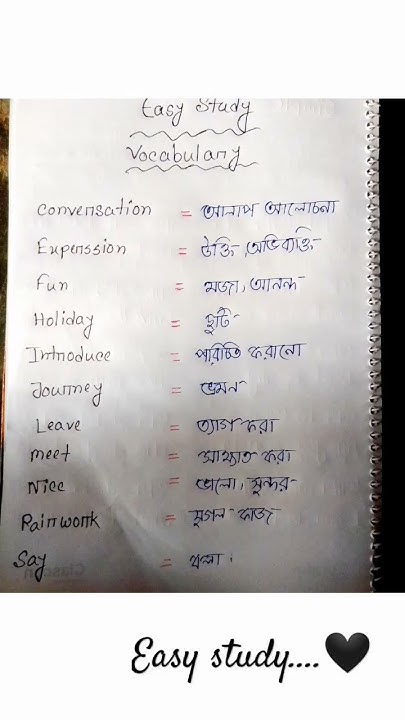 Easy Study
Vocabulary
Conversation = আলাপ আলোচনা
Experssion = উক্তি, অভিব্যক্তি
Fun = মজা, আনন্দ
Holiday = ছুটি
Introduce = পরিচিতি করানো
Journey = ভ্রমন
Leave = ত্যাগ করা
meet = সাক্ষাত করা
Nice = ভালো, সুন্দর
Pairwork = যুগল কাজ
Say = বলা।
Easy study....🖤